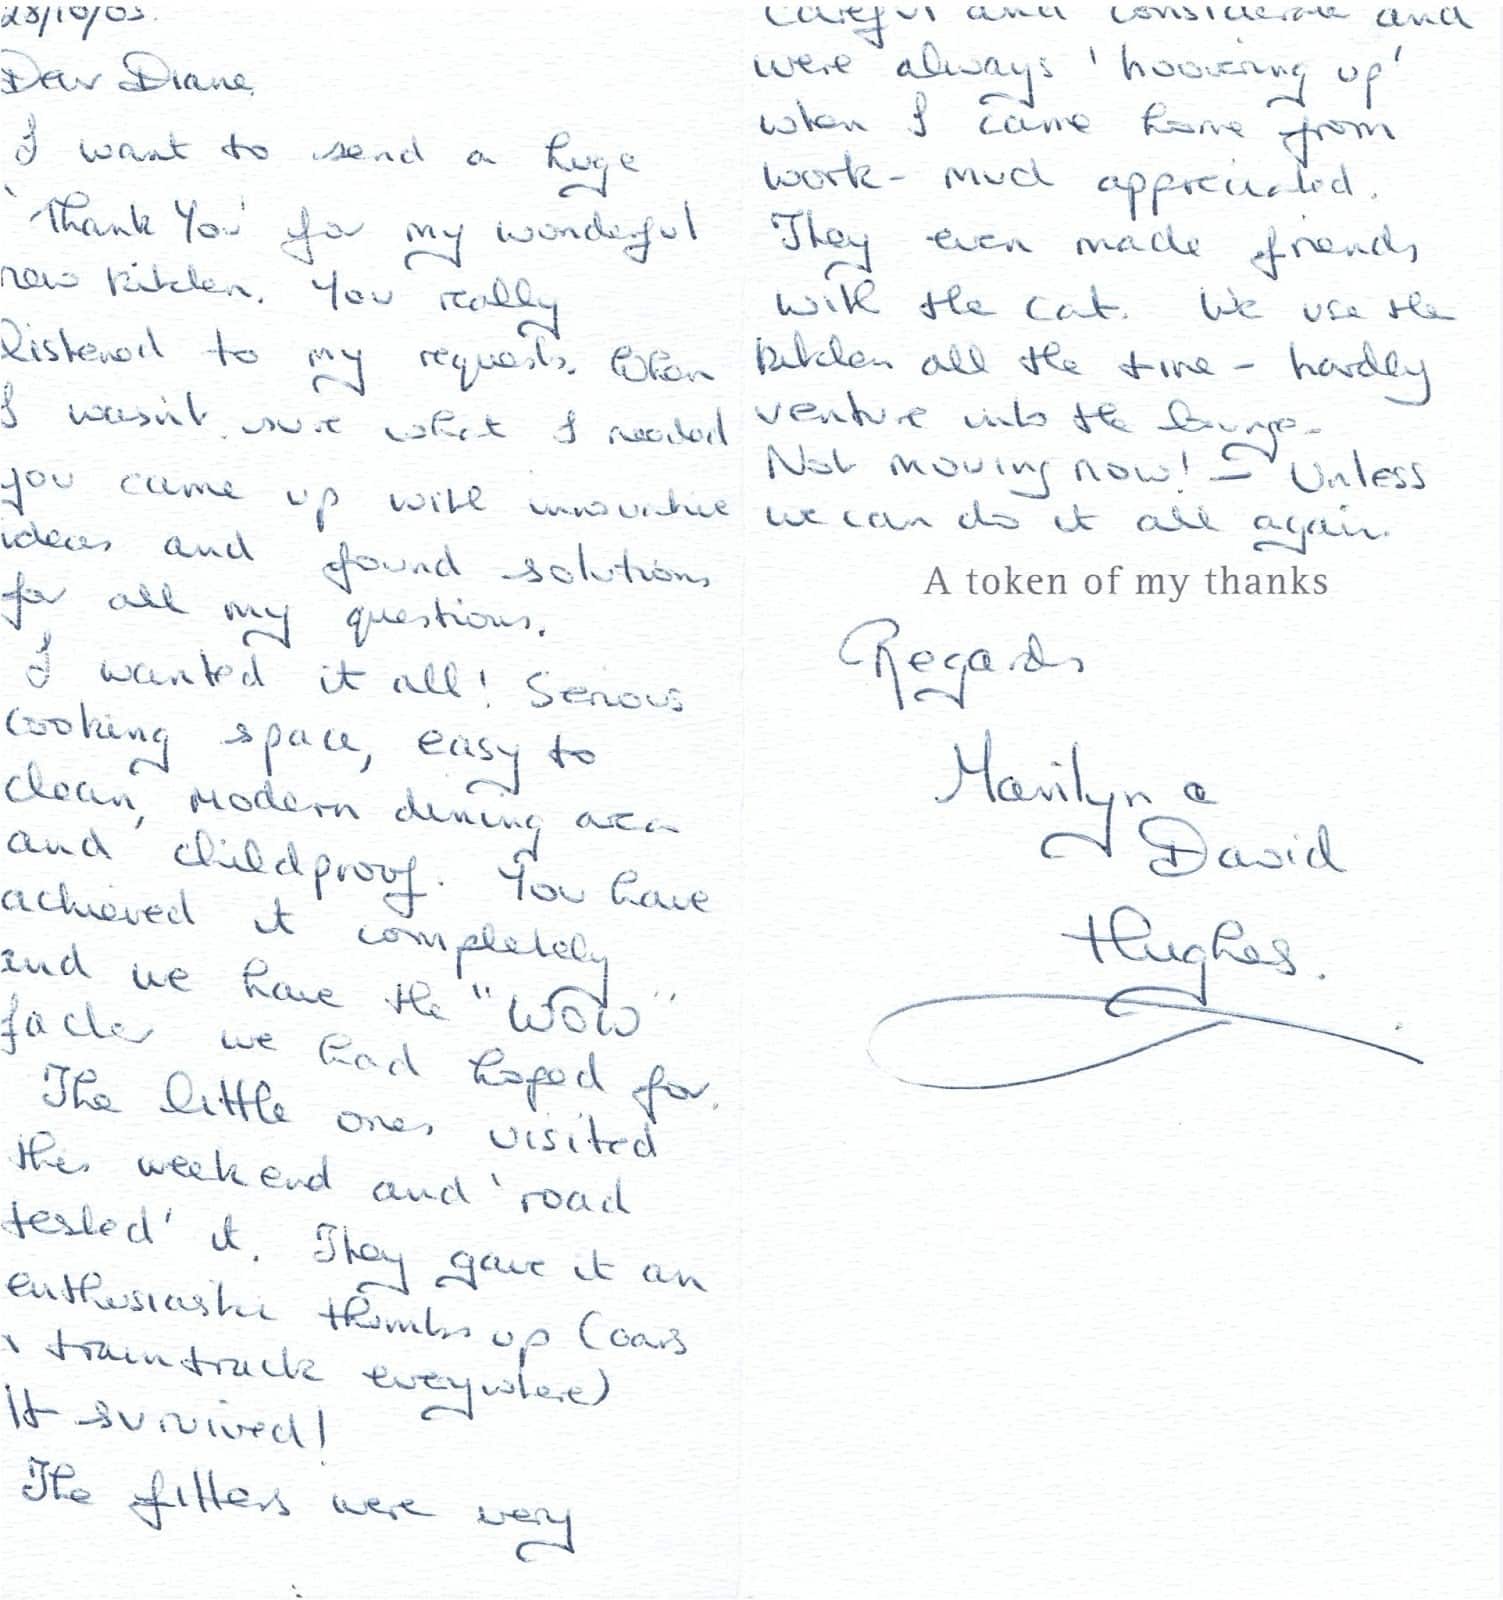 28/10/03.
Dear Diane,
I want to send a huge
'Thank You' for my wonderful
new kitchen. You really
listened to my requests. When
I wasn't sure what I needed
you came up with innovative
ideas and found solutions
for all my questions.
I wanted it all! Serious
cooking space, easy to
clean, modern dining area
and childproof. You have
achieved it completely
and we have the "WOW"
factor we had hoped for.
The little ones visited
this weekend and 'road
tested' it. They gave it an
enthusiastic thumbs up (cars
& train track everywhere)
It survived!
The fitters were very
careful and considerate and
were always 'hoovering up'
when I came home from
work - much appreciated.
They even made friends
with the cat. We use the
kitchen all the time - hardly
venture into the lounge.
Not moving now! - Unless
we can do it all again.
A token of my thanks
Regards
Marilyn &
David
Hughes.